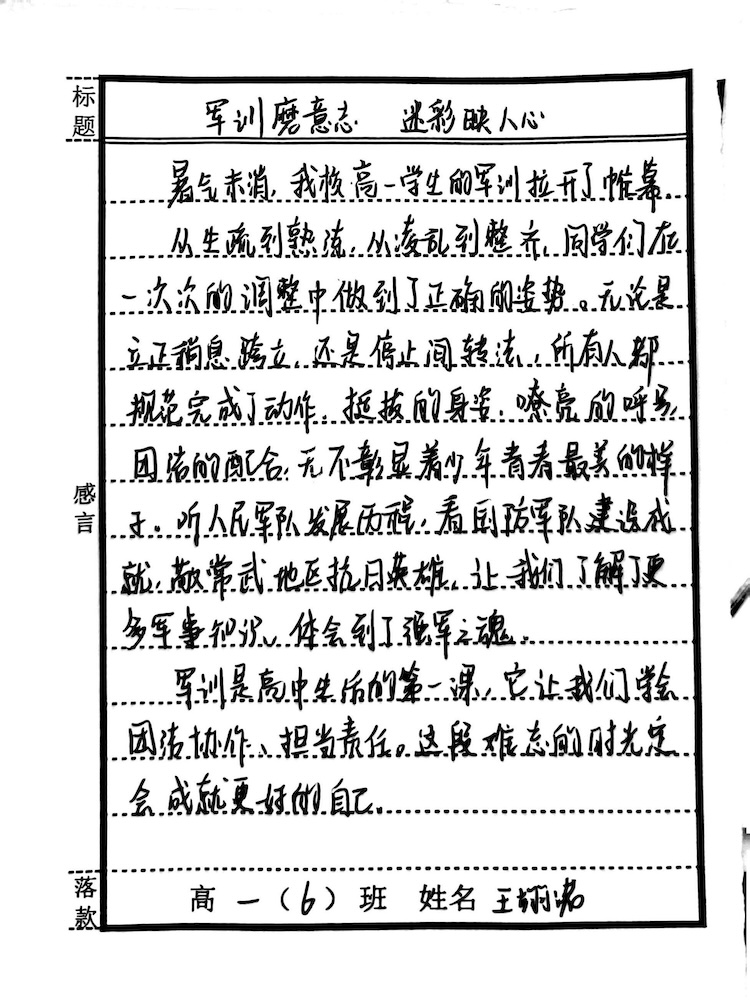 标题
军训磨意志 迷彩映人心
暑气未消,我校高一学生的军训拉开了帷幕。
从生疏到熟练,从凌乱到整齐,同学们在
一次次的调整中做到了正确的姿势。无论是
立正稍息跨立,还是停止间转法,所有人都
规范完成了动作。挺拔的身姿,嘹亮的呼号,
团结的配合,无不彰显着少年青春最美的样
子。听人民军队发展历程,看国防军队建设成
就,敬常武地区抗日英雄,让我们了解了更
多军事知识、体会到了强军之魂。
感言
军训是高中生活的第一课,它让我们学会
团结协作、担当责任。这段难忘的时光定
会成就更好的自己。
落款
高一(6)班 姓名 王翊